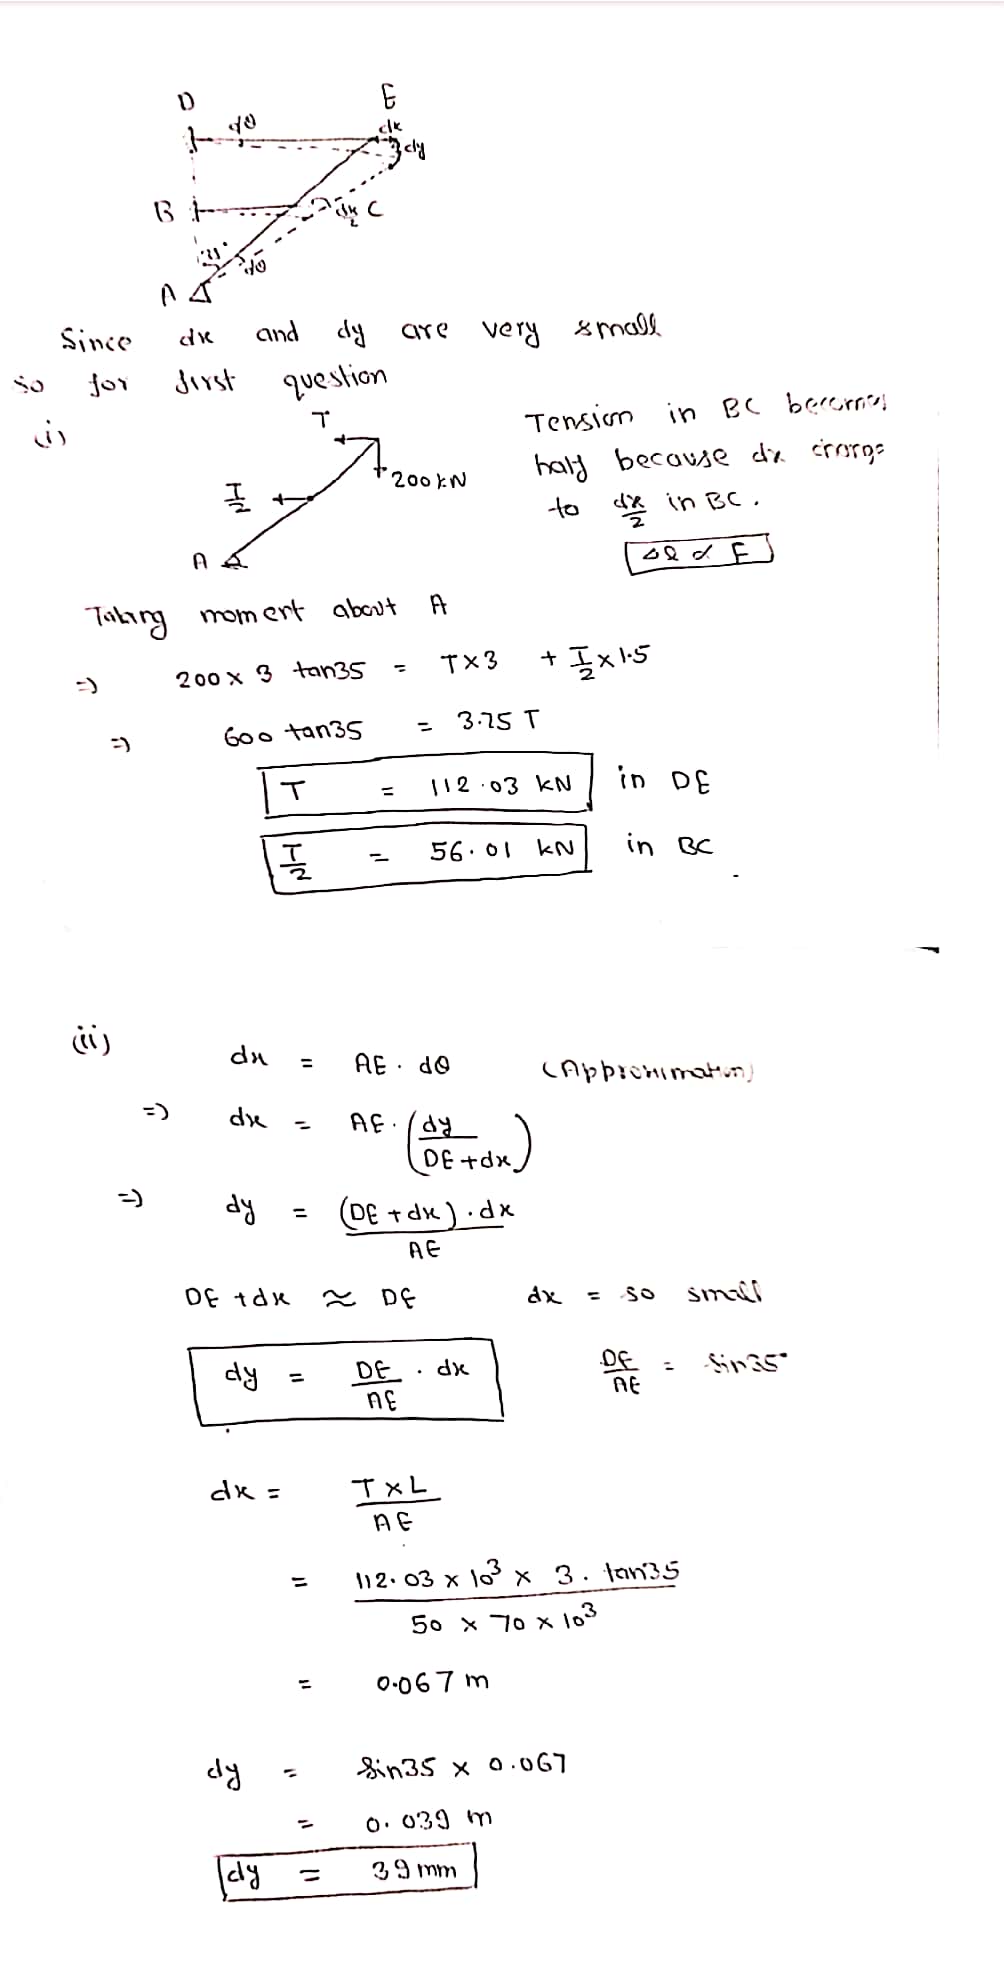 D E
dθ dx
dy
B dx/2 C
35° dθ
A
Since dx and dy are very small
so for first question
(i) T
Tension in BC becomes
half because dx change
to dx/2 in BC.
T/2 200 kN
A
Δl α F
Taking moment about A
=) 200 x 3 tan35 = T x 3 + T/2 x 1.5
=) 600 tan35 = 3.75 T
T = 112.03 kN in DE
T/2 = 56.01 kN in BC
(ii) dx = AE . dθ (Approximation)
=) dx = AE . (dy/DE + dx)
=) dy = (DE + dx) . dx / AE
DE + dx ≈ DE dx = so small
dy = DE/AE . dx DE/AE = Sin35°
dx = T x L / AE
= 112.03 x 10³ x 3 . tan35 / 50 x 70 x 10³
= 0.067 m
dy = Sin35 x 0.067
= 0.039 m
dy = 39 mm